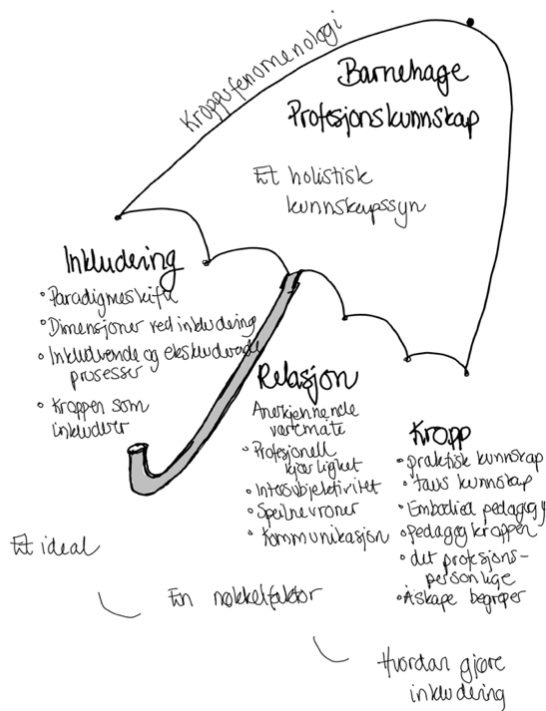 Kroppsfenomenologi
Barnehage
Profesjonskunnskap
Et holistisk
kunnskapssyn
Inkludering
• Paradigmeskifte
• Dimensjoner ved inkludering
• Inkluderende og ekskluderende
prosesser
• Kroppen som
inkluderer
Relasjon
Anerkjennende
væremåte
• Profesjonell
kjærlighet
• Intersubjektivitet
• Speilnevroner
• Kommunikasjon
Kropp
• praktisk kunnskap
• taus kunnskap
• Embodied pedagogy
• pedagogkroppen
• det profesjons-
personlige
• Å skape begreper
Et ideal
En nøkkelfaktor
Hvordan gjøre
inkludering